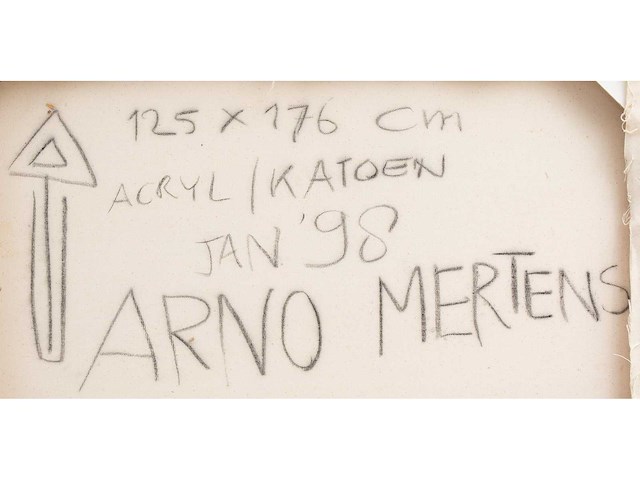 125 x 176 cm
ACRYL/KATOEN
JAN '98
ARNO MERTENS